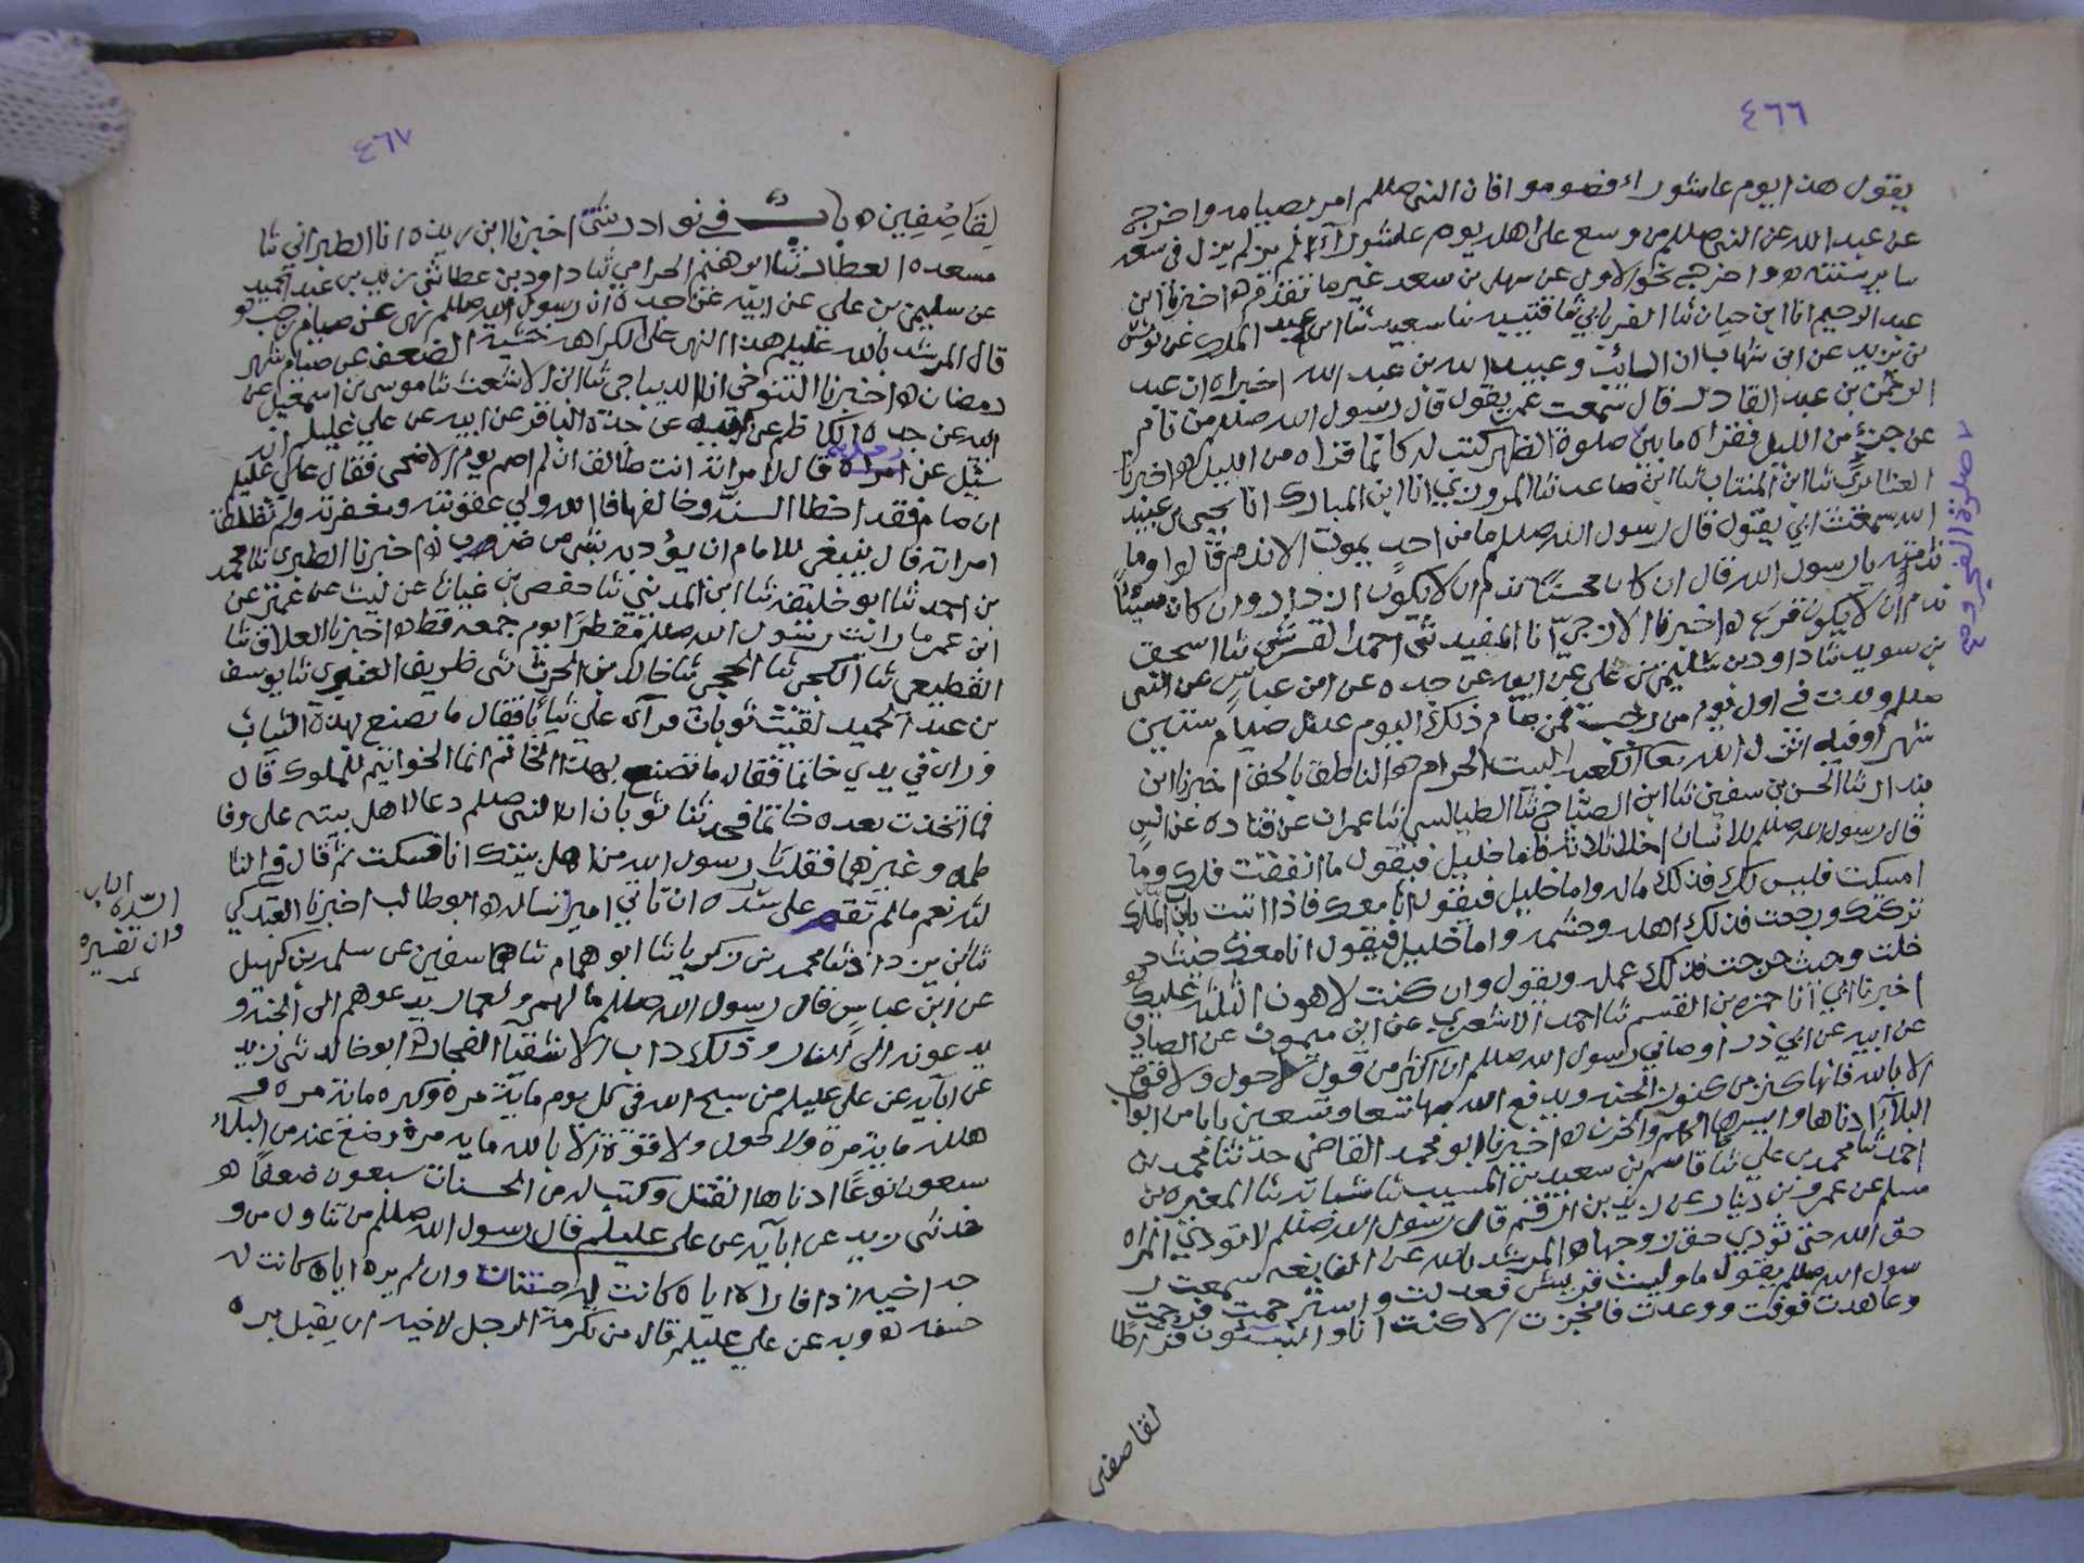 ٤٦٦
يقول هذا يوم عاشوراء فصوموا فان النبي صللم امر بصيامه واخرج
عن عبد الله عن النبي صللم من وسع على اهله يوم عاشوراء لم يزل في سعة
ساير سنته واخرج نحو الاول عن سهل بن سعد غير ما تقدم اخبرنا ابن
عبد الرحيم انا ابن حيان ثنا الفريابي ثنا قتيبه بن سعيد ثنا عبد الملك عن يونس
بن يزيد عن ابن شهاب ان السائب وعبيد الله بن عبد الله اخبراه ان عبد
الرحمن بن عبد القادر قال سمعت عمر يقول قال رسول الله صللم من نام
عن جزئه من الليل فقراه ما بين صلوة الظهر كتب له كانما قراه من الليل اخبرنا
صلوة الفجر و
ثنا ابن المنتاب ثنا ابن صاعد ثنا المروزي انا ابن المبارك انا يحيى بن عبيد
الله سمعت ابي يقول قال رسول الله صللم ما من احد يموت الا ندم قالوا وما
ندامته يا رسول الله قال ان كان محسنا ندم ان لا يكون ازداد وان كان مسيئا
ندم ان لا يكون نزع اخبرنا الازجي انا المفيد ثنى احمد القرشي ثنا اسحق
بن سويد ثنا داود بن سليمن بن علي عن ابيه عن جده عن ابن عباس عن النبي
صللم ولدت في اول يوم من رجب فمن صام ذلك اليوم عدل صيام ستين
شهرا وفيه انزل الله تعا الكعبه البيت الحرام الناطق بالحق اخبرنا ابن
بندار ثنا الحسن بن سفين ثنا ابن الصباح ثنا الطيالسي ثنا عمران عن قتاده عن انس
قال رسول الله صللم للانسان اخلا ثلاثة فاما خليل فيقول ما انفقت فلك وما
امسكت فليس لك فذلك ماله واما خليل فيقول انا معك فاذا اتيت باب الملك
تركتك ورجعت فذلك اهله وحشمه واما خليل فيقول انا معك حيث د
خلت وحيث خرجت فذلك عمله ويقول وان كنت لاهون الثلثه عليك
اخبرنا ابي انا حمزه بن القسم ثنا احمد الاشعري عن ابن ميمون عن الصادق
عن ابيه عن ابي ذر اوصاني رسول الله صللم ان اكثر من قول لا حول ولا قوة
الا بالله فانها كنز من كنوز الجنه ويدفع الله بها تسعا وتسعين بابا من ابواب
البلاء ادناها وايسرها الهم والحزن اخبرنا ابو محمد القاضي حدثنا محمد بن
احمد ثنا محمد بن علي ثنا قاسم بن سعيد بن المسيب ثنا شبابه ثنا المغيره بن
مسلم عن عمرو بن دينار عن زيد بن ارقم قال رسول الله صللم لا تودي المراه
حق الله حتى تؤدي حق زوجها المرشد بالله عن النابغه سمعت ر
سول الله صللم يقول ما وليت قريش فعدلت واسترحمت فرحمت
وعاهدت فوفت ووعدت فانجزت الا كنت انا والنبيئون فراطا
لقاصفين
٤٦٧
لِقَاصِفِين باب في نوادر شتى اخبرنا ابن ريذه انا الطبراني ثنا
مسعده العطار ثنا ابرهيم الحزامي ثنا داود بن عطا ثنى زيد بن عبد الحميد
عن سليمن بن علي عن ابيه عن جده ان رسول الله صللم نهى عن صيام رجب
قال المرشد بالله عليلم هذا النهي على الكراهه خشية الضعف عن صيام شهر
رمضان اخبرنا التنوخي انا الديباجي ثنا ابن الاشعث ثنا موسى بن اسمعيل عن
ابيه عن جده الكاظم عن ابيه عن جده الباقر عن ابيه عن علي عليلم انه
سئل عن رجل قال لامراته انت طالق ان لم اصم يوم الاضحى فقال علي عليلم
ان صام فقد اخطا السنة وخالفها فالله ولي عقوبته ومغفرته ولم تطلق
امراته قال ينبغي للامام ان يؤدبه بشي من ضرب اخبرنا الطبري ثنا محمد
بن احمد ثنا ابو خليفه ثنا ابن المديني ثنا حفص بن غياث عن ليث عن عمير عن
ابن عمر ما رايت رسول الله صللم مفطرا يوم جمعه قط اخبرنا العلاف ثنا
القطيعي ثنا الكجي ثنا الحجبي ثنا خالد بن الحرث ثنى طريف العنبري ثنا يوسف
بن عبد الحميد لقيت ثوبان فرآى علي ثيابا فقال ما تصنع بهذه الثياب
وراى في يدي خاتما فقال ما تصنع بهذا الخاتم انما الخواتيم للملوك قال
فما اتخذت بعده خاتما فحدثنا ثوبان ان النبي صللم دعا لاهل بيته على وفا
طمه وغيرهما فقلت يا رسول الله من اهل بيتك انا فسكت ثم قال في الثا
لثه نعم ما لم تقم على سُدّه او تاتي اميرا تساله ابو طالب اخبرنا
السّدة الباب
ثنا بن يزداد ثنا محمد بن زكريا ثنا ابو همام ثنا سفين عن سلمه بن كهيل
عن ابن عباس قال رسول الله صللم ما لهم ولعمار يدعوهم الى الجنه و
يدعونه الى النار وذلك داب الاشقيآ الفجار ابو خالد ثنى زيد
عن ابآيه عن علي عليلم من سبح الله في كل يوم ماية مرة وكبره ماية مره و
هلله ماية مرة ولا حول ولا قوة الا بالله مايه مرة دفع عنه من البلاء
سبعون نوعًا ادناها القتل وكتب له من الحسنات سبعون ضعفًا
حدثنى زيد عن ابآيه عن على عليلم قال رسول الله صللم من تناول من و
جه اخيه اذا فاراه اياه كانت له حسنات وان لم يره اياه كانت له
حسنه وبه عن علي عليلم قال من تكرمة الرجل لاخيه ان يقبل بره